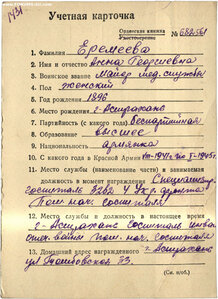 1431
Учетная карточка
Орденская книжка
Удостоверение
№ 682561
1. Фамилия Еремеева
2. Имя и отчество Анна Георгиевна
3. Воинское звание Майор мед. службы
4. Пол женский
5. Год рождения 1896
6. Место рождения г. Астрахань
7. Партийность (с какого года) Беспартийная
8. Образование высшее
9. Национальность армянка
10. С какого года в Красной Армии 1941 по 1945г.
11. Место службы (наименование части) и занимаемая
должность в момент награждения
госпиталь 3262 4 Укр. фронта
Пом. нач. госпиталя
12. Место службы и должность в настоящее время
г. Астрахань Госпиталь
войны Пом. нач. госпиталя
13. Домашний адрес награжденного г. Астрахань
ул. 53.
(См. н/об.)